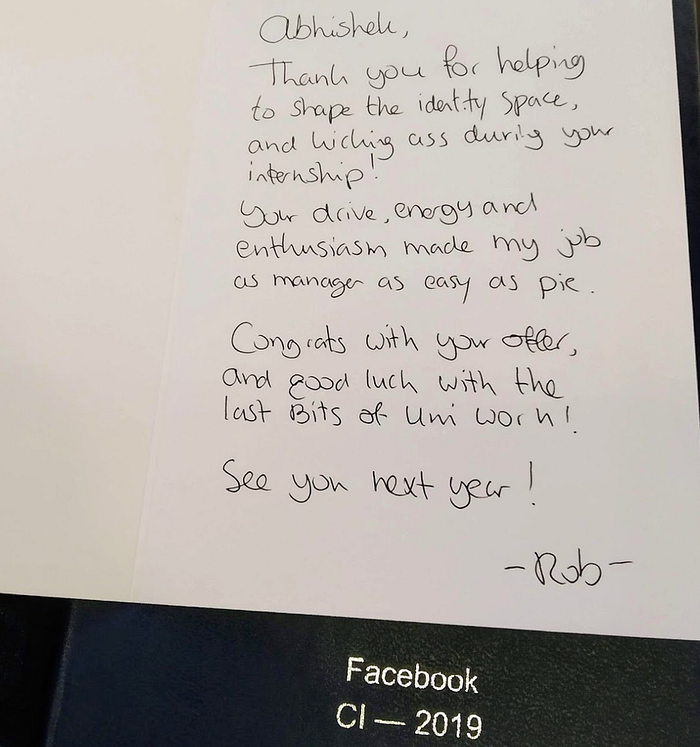 Abhishek,
Thank you for helping
to shape the identity space,
and kicking ass during your
internship!
Your drive, energy and
enthusiasm made my job
as manager as easy as pie.
Congrats with your offer,
and good luck with the
last Bits of Uni work!
See you next year!
-Rob-
Facebook
CI — 2019